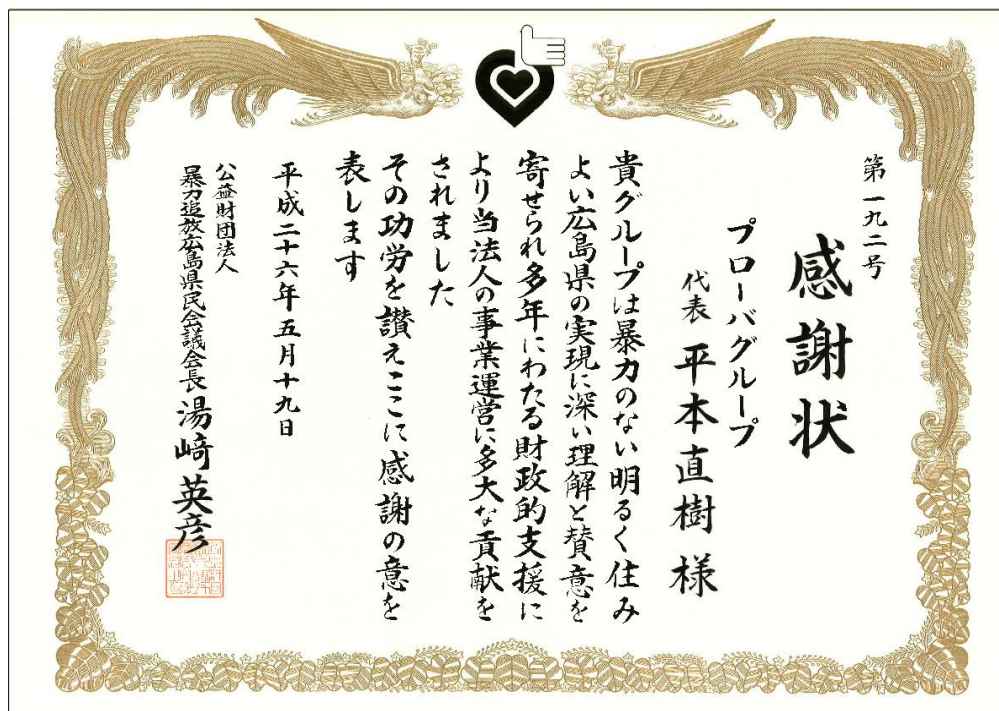 第一九二号
感謝状
プローバグループ
代表 平本直樹 様
貴グループは暴力のない明るく住み
よい広島県の実現に深い理解と賛意を
寄せられ多年にわたる財政的支援に
より当法人の事業運営に多大な貢献を
されました
その功労を讃えここに感謝の意を
表します
平成二十六年五月十九日
公益財団法人
暴力追放広島県民会議会長 湯﨑英彦